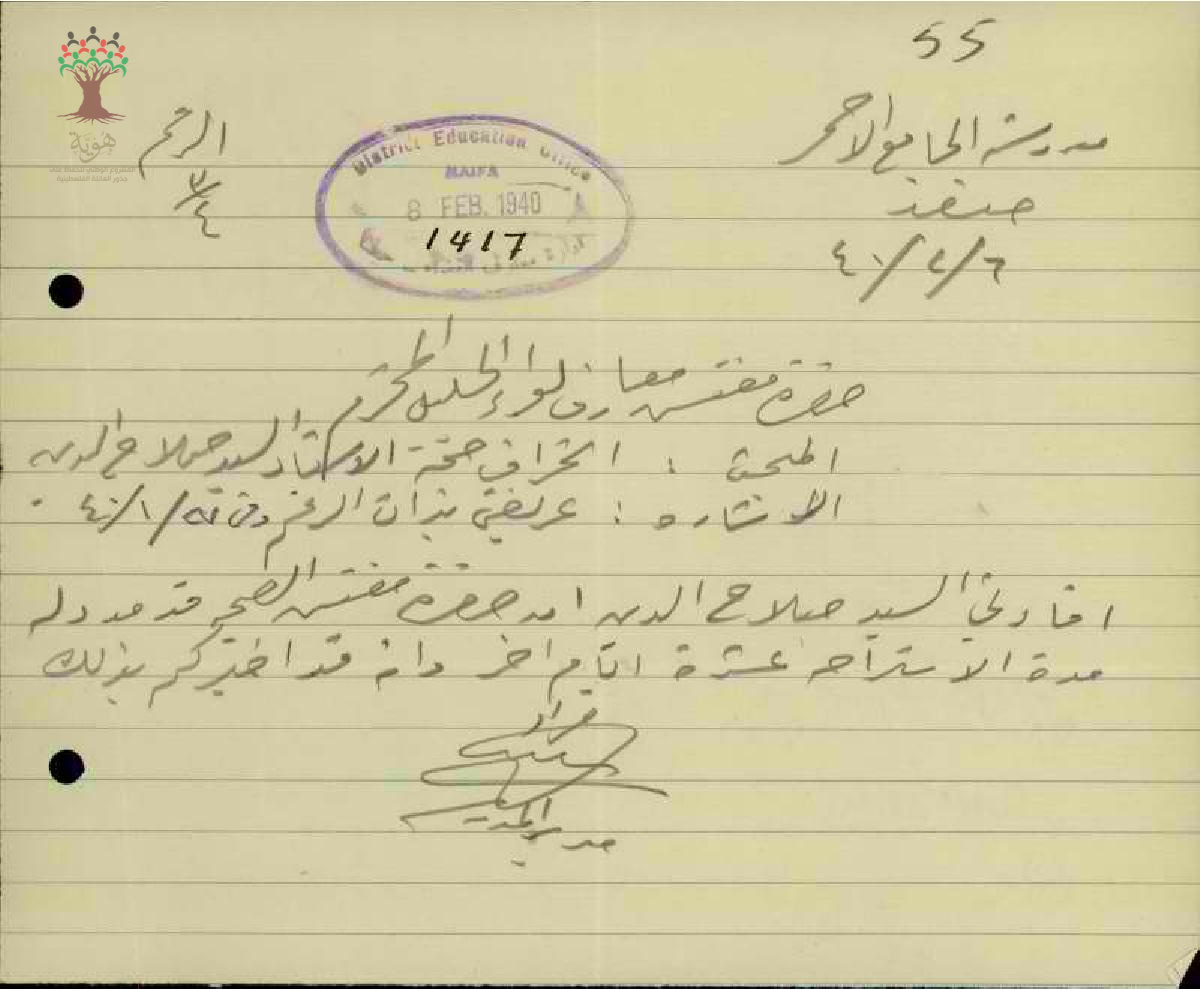 55
مدرسة الجامع الاحمر
صفد
٤٠/٢/٦
الرقم
٣/٤
District Education Office
HAIFA
8 FEB. 1940
1417
هوية
حضرة مفتش معارف لواء الجليل المحترم
المبحث : انحراف صحة الاستاذ السيد صلاح الدين
الاشارة : عريضتي بذات الرقم وفي ٤٠/١/
افادني السيد صلاح الدين ان حضرة مفتش الصحة قد مدد له
مدة الاستراحة عشرة ايام اخر وانه قد اخبركم بذلك
مدير المدرسة